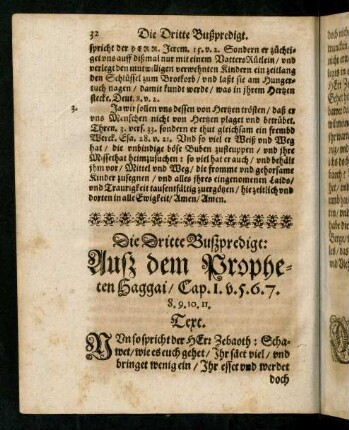 32 Die Dritte Bußpredigt.
spricht der HERR. Jerem. 15. v. 2. Sondern er züchti-
get vns auff dißmal nur mit einem Vatters Rütlein / vnd
verlegt den mutwilligen verwehnten Kindern ein zeitlang
den Schlüssel zum Brotkorb / vnd läst sie am Hunger-
tuch nagen / damit kundt werde / was in jhrem Hertzen
stecke. Deut. 8. v. 2.
3. Ja wir sollen vns dessen von Hertzen trösten / daß er
vns Menschen nicht von Hertzen plaget vnd betrübet.
Thren. 3. vers. 33. sondern er thut gleichsam ein frembd
Werck. Esa. 28. v. 21. Vnd so viel er Weiß vnd Weg
hat / die vnbändige böse Buben zusteuppen / vnd jhre
Missethat heimzusuchen : so viel hat er auch / vnd behält
jhm vor / Mittel vnd Weg / die fromme vnd gehorsame
Kinder zusegnen / vnd alles jhres eingenommenen Laids /
vnd Traurigkeit tausentfältig zuergötzen / hie zeitlich vnd
dorten in alle Ewigkeit / Amen / Amen.
Die Dritte Bußpredigt:
Auß dem Prophe-
ten Haggai / Cap. I. v. 5. 6. 7.
8. 9. 10. 11.
Text.
NVn so spricht der HErr Zebaoth : Scha-
wet / wie es euch gehet / Jhr säet viel / vnd
bringet wenig ein / Jhr esset vnd werdet
doch